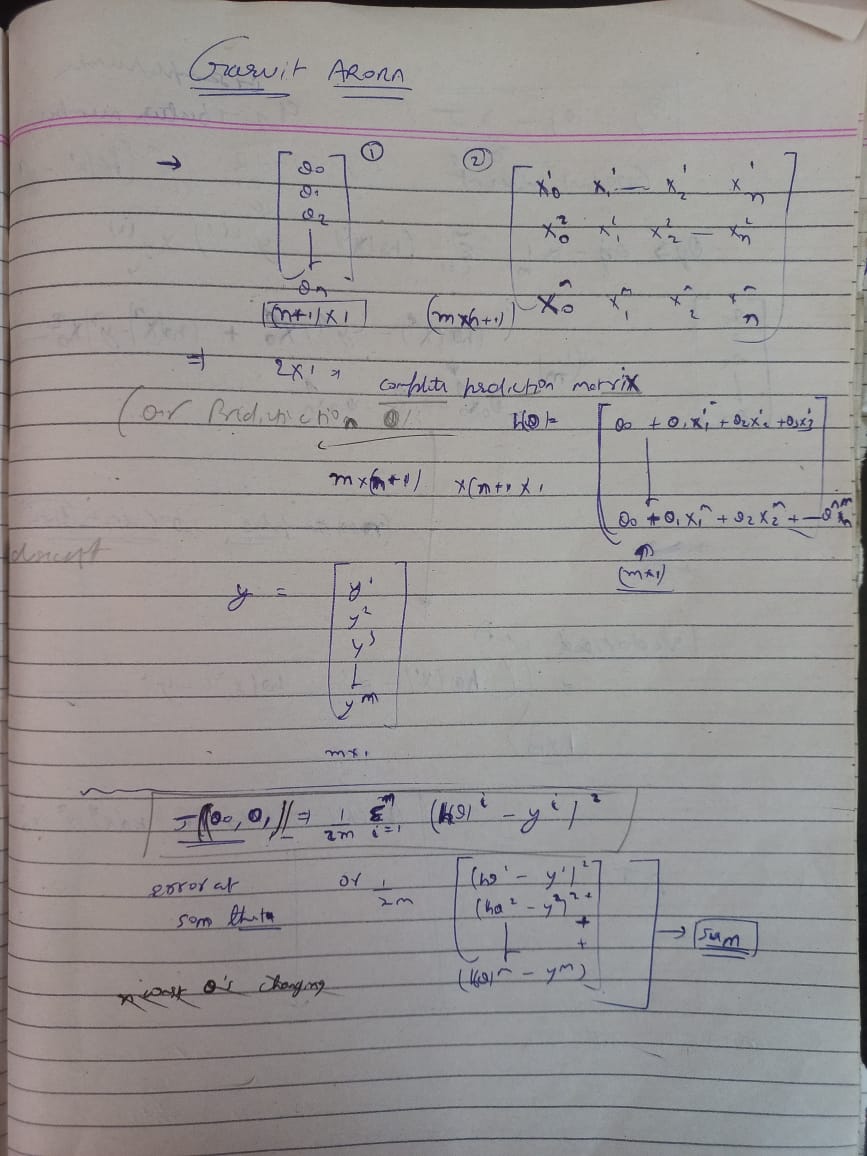 Garvit ARORA
→ [θ₀ θ₁ θ₂ | θₙ] ①
(n+1) × 1
② [x₀¹ x₁¹ — x₂¹ xₙ¹
x₀² x₁² x₂² — xₙ²
x₀ᵐ x₁ᵐ x₂ᵐ xₙᵐ]
(m×(n+1))
⇒ 2×1 →
complete prediction matrix
(or Prediction θ)
h(θ)= [θ₀ + θ₁x₁¹ + θ₂x₂¹ + θ₃x₃¹
|
θ₀ + θ₁x₁ᵐ + θ₂x₂ᵐ + —
m×(n+1) ×(n+1 × 1
(m×1)
y = [y¹
y²
y³
|
yᵐ]
m×1
J(θ₀, θ₁) ⇒ 1/2m Σᵐ i=1 (h(θ)ⁱ - yⁱ)²
error at
som theta
or 1/2m [(hθ¹ - y¹)²
(hθ² - y²)² +
| +
+
(h(θ)ᵐ - yᵐ)] → Sum
θ's changing